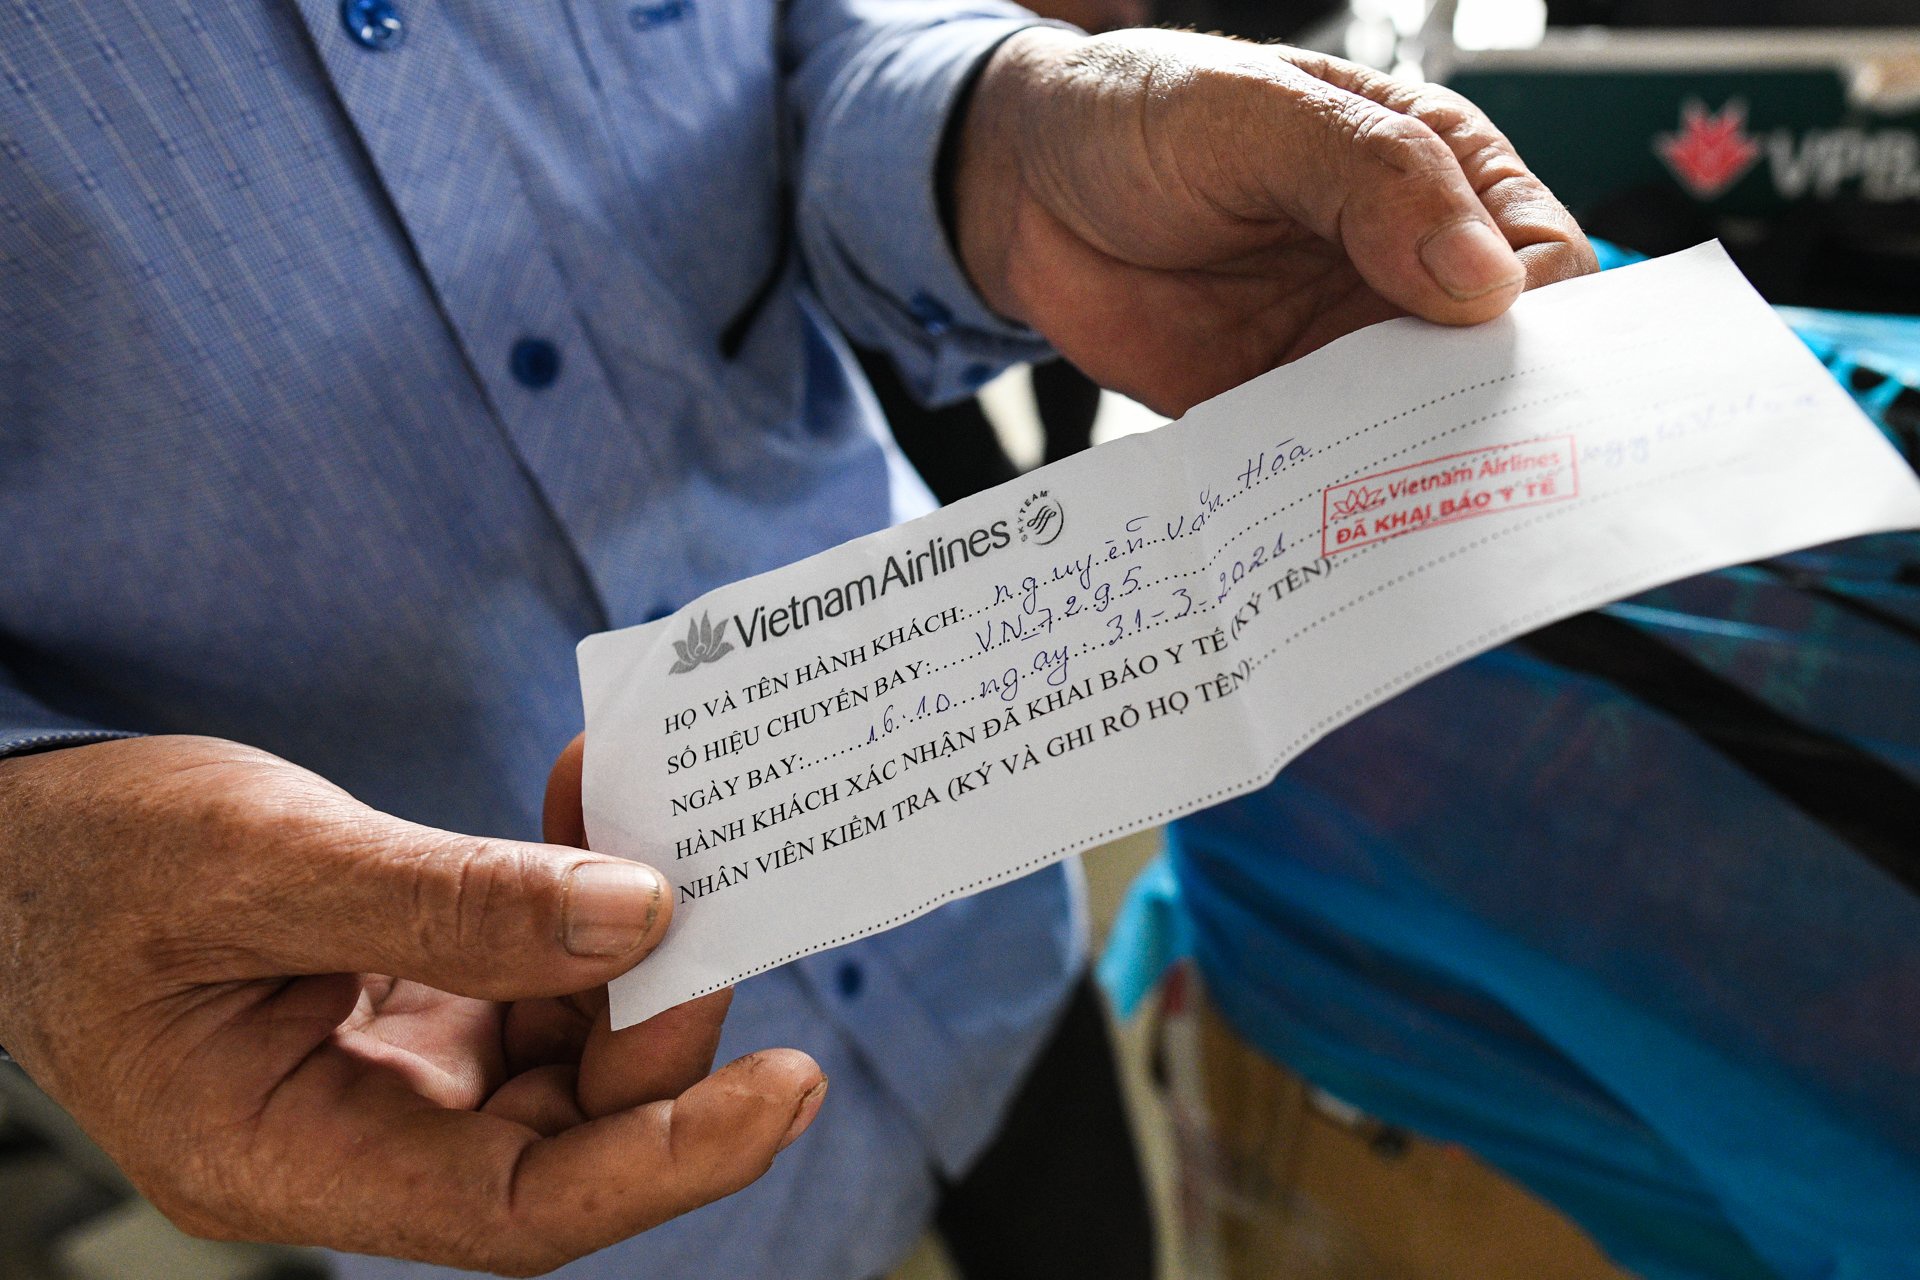 VPB
Vietnam Airlines
SKYTEAM
HỌ VÀ TÊN HÀNH KHÁCH: Nguyễn Văn Hóa
SỐ HIỆU CHUYẾN BAY: VN 7295
NGÀY BAY: 16:10 ngay: 31-3-2021
HÀNH KHÁCH XÁC NHẬN ĐÃ KHAI BÁO Y TẾ (KÝ TÊN):
NHÂN VIÊN KIỂM TRA (KÝ VÀ GHI RÕ HỌ TÊN):
Vietnam Airlines
ĐÃ KHAI BÁO Y TẾ